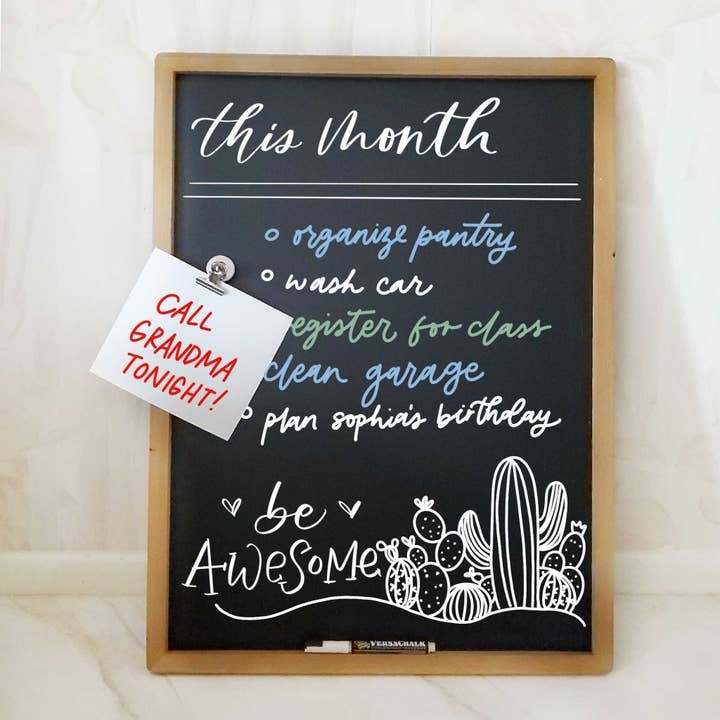 this month
organize pantry
wash car
register for class
clean garage
plan sophia's birthday
CALL
GRANDMA
TONIGHT!
be
AWESOMe
VERSACHALK